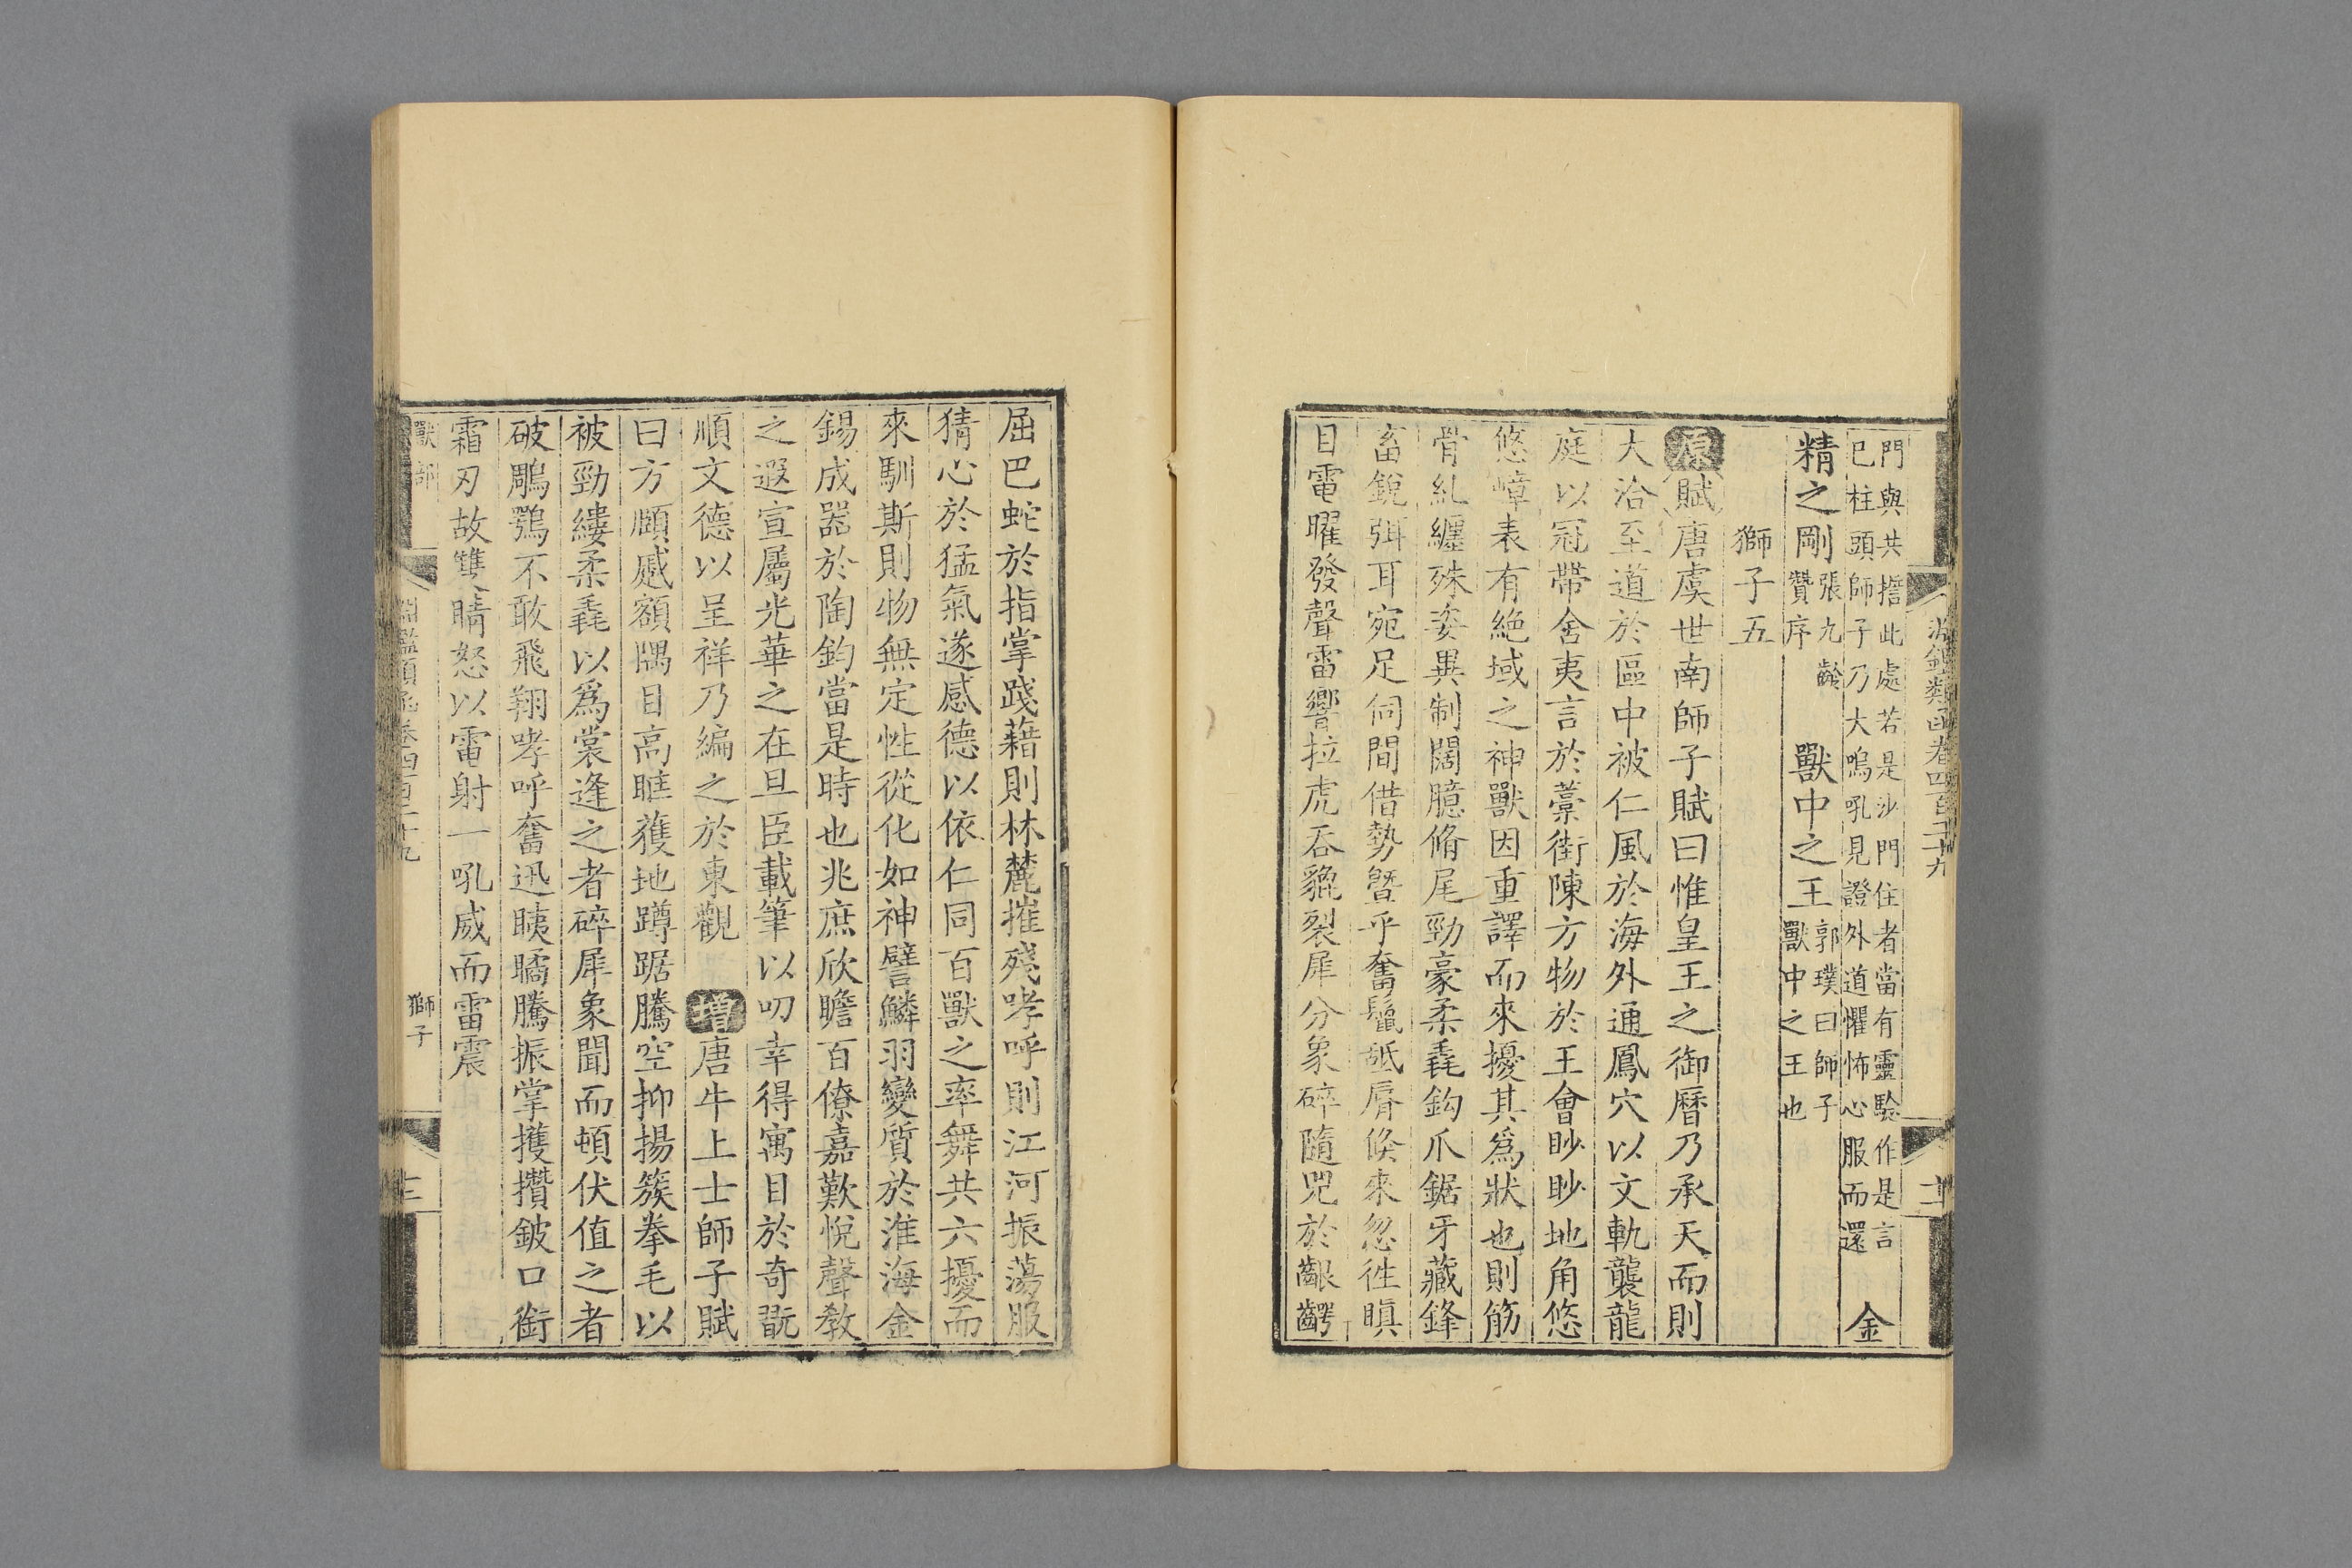 淵鑑類函卷四百二十九
門與共擔此處若是沙門住者當有靈驗作是言
巳柱頭師子乃大鳴吼見證外道懼怖心服而還
金
精之剛
張九齡
贊序
獸中之王
郭璞曰師子
獸中之王也
獅子五
原賦唐虞世南師子賦曰惟皇王之御曆乃承天而則
大洽至道於區中被仁風於海外通鳳穴以文軌襲龍
庭以冠帶舍夷言於藁街陳方物於王會眇眇地角悠
悠嶂表有絶域之神獸因重譯而來擾其爲狀也則筋
骨糺纏殊姿異制闊臆脩尾勁豪柔毳鉤爪鋸牙藏鋒
畜銳弭耳宛足伺間借勢曁乎奮鬛舐脣倐來忽徃瞋
目電曜發聲雷響拉虎吞貔裂犀分象碎隨兕於齦齶
屈巴蛇於指掌踐藉則林麓摧殘哮呼則江河振蕩服
猜心於猛氣遂感德以依仁同百獸之率舞共六擾而
來馴斯則物無定性從化如神譬鱗羽變質於淮海金
錫成器於陶鈞當是時也兆庶欣瞻百僚嘉歎悅聲敎
之遐宣屬光華之在旦臣載筆以叨幸得寓目於奇翫
順文德以呈祥乃編之於東觀 增唐牛上士師子賦
曰方頥蹙額隅目高眶蠖地蹲踞騰空抑揚簇拳毛以
被勁縷柔毳以爲裳逢之者碎犀象聞而頓伏值之者
破鵰鶚不敢飛翔哮呼奮迅眱矞騰振掌擭攢鈹口銜
霜刃故雙睛怒以電射一吼威而雷震
獸部
淵鑑類函卷四百二十九
獅子